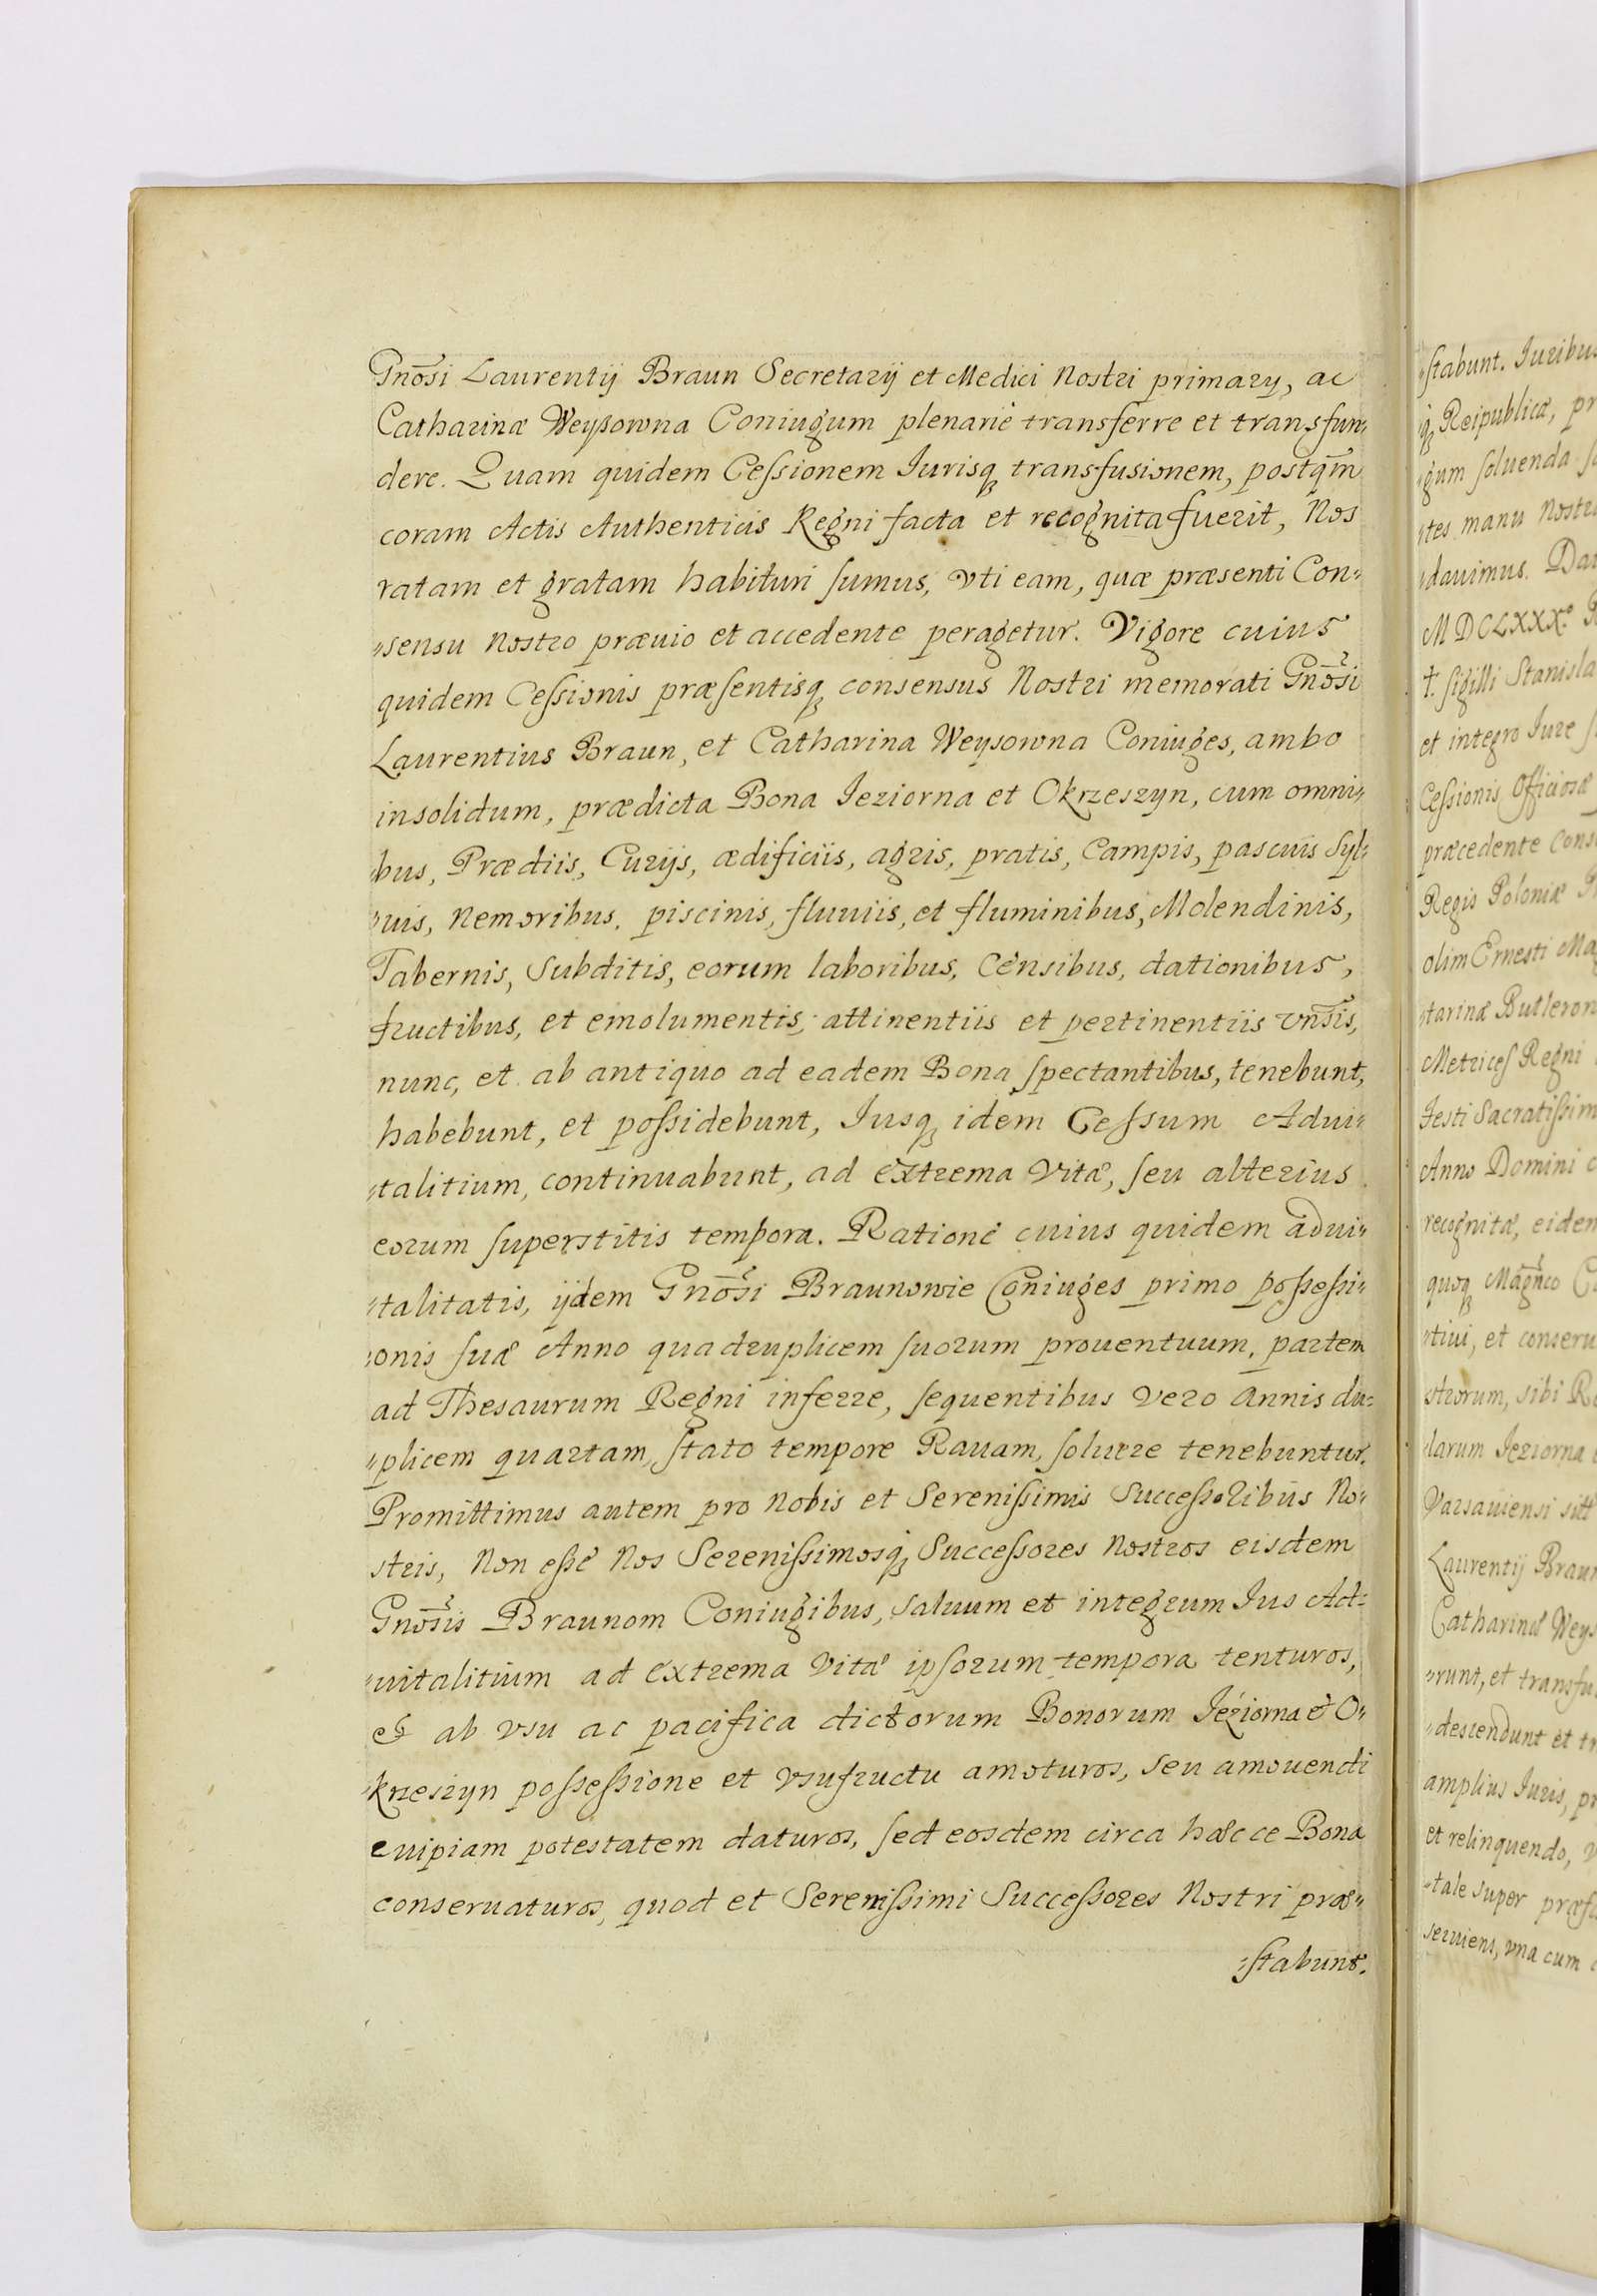 Gnōsi Laurentij Braun Secretarij et Medici Nostri primarij, ac
Catharinæ Weysowna Coniugum plenariè transferre et transfun„
dere. Quam quidem Cessionem Iurisq; transfusionem, postq̄m
coram Actis Authenticis Regni facta et recognita fuerit, Nos
ratam et gratam habituri sumus, vti eam, quæ præsenti Con„
„sensu Nostro præuio et accedente peragetur. Vigore cuius
quidem Cessionis præsentisq; consensus Nostri memorati Gnōsi
Laurentius Braun, et Catharina Weysowna Coniuges, ambo
insolidum, prædicta Bona Jeziorna et Okrzeszyn, cum omni„
„bus, Prædiis, Curijs, ædificiis, agris, pratis, Campis, pascuis Syl„
„uis, Nemoribus, piscinis, fluuiis, et fluminibus, Molendinis,
Tabernis, Subditis, eorum laboribus, Censibus, dationibus,
fructibus, et emolumentis, attinentiis et pertinentiis vn̄sis,
nunc, et ab antiquo ad eadem Bona spectantibus, tenebunt,
habebunt, et possidebunt, Iusq; idem Cessum Adui„
„talitium, continuabunt, ad extrema Vitæ, seu alterius
eorum superstitis tempora. Ratione cuius quidem adui„
„talitatis, ijdem Gnōsi Braunowie Coniuges primo possessi„
„onis suæ Anno quadruplicem suorum prouentuum, partem
ad Thesaurum Regni inferre, sequentibus Vero Annis du„
„plicem quartam, stato tempore Rauam, soluere tenebuntur.
Promittimus autem pro Nobis et Serenissimis Successoribus No„
stris, Non esse Nos Serenissimosq; Successores Nostros eisdem
Gnōsis Braunom Coniugibus, saluum et integrum Ius Ad„
„uitalitium ad extrema Vitæ ipsorum tempora tenturos,
et ab vsu ac pacifica dictorum Bonorum Jeziorna et O„
„krzeszyn possessione et vsufructu amoturos, seu amouendi
cuipiam potestatem daturos, sed eosdem circa hæcce Bona
conseruaturos, quod et Serenissimi Successores Nostri præ„
„stabunt.
„stabunt. Iuribus
q; Reipublicæ, pr
„gum soluenda
„tes manu Nostr
„dauimus. Da
MDCLXXXº
† sigilli Stanisla
et integro Iure
Cessionis Officiosæ
præcedente Cons
Regis Poloniæ
olim Ernesti Ma
„tarinæ Butleron
Metrices Regni
Iesti Sacratissim
Anno Domini
recognitæ, eiden
quoq; Magn̄co
„tiui, et conseru
„strorum, sibi R
„larum Jeziorna
Varsauiensi sit
Laurentij Braun
Catharinæ Weys
„runt, et transfu
„descendunt et tr
amplius Iuris, pr
et relinquendo,
„tale super præf
seruiens, vna cum